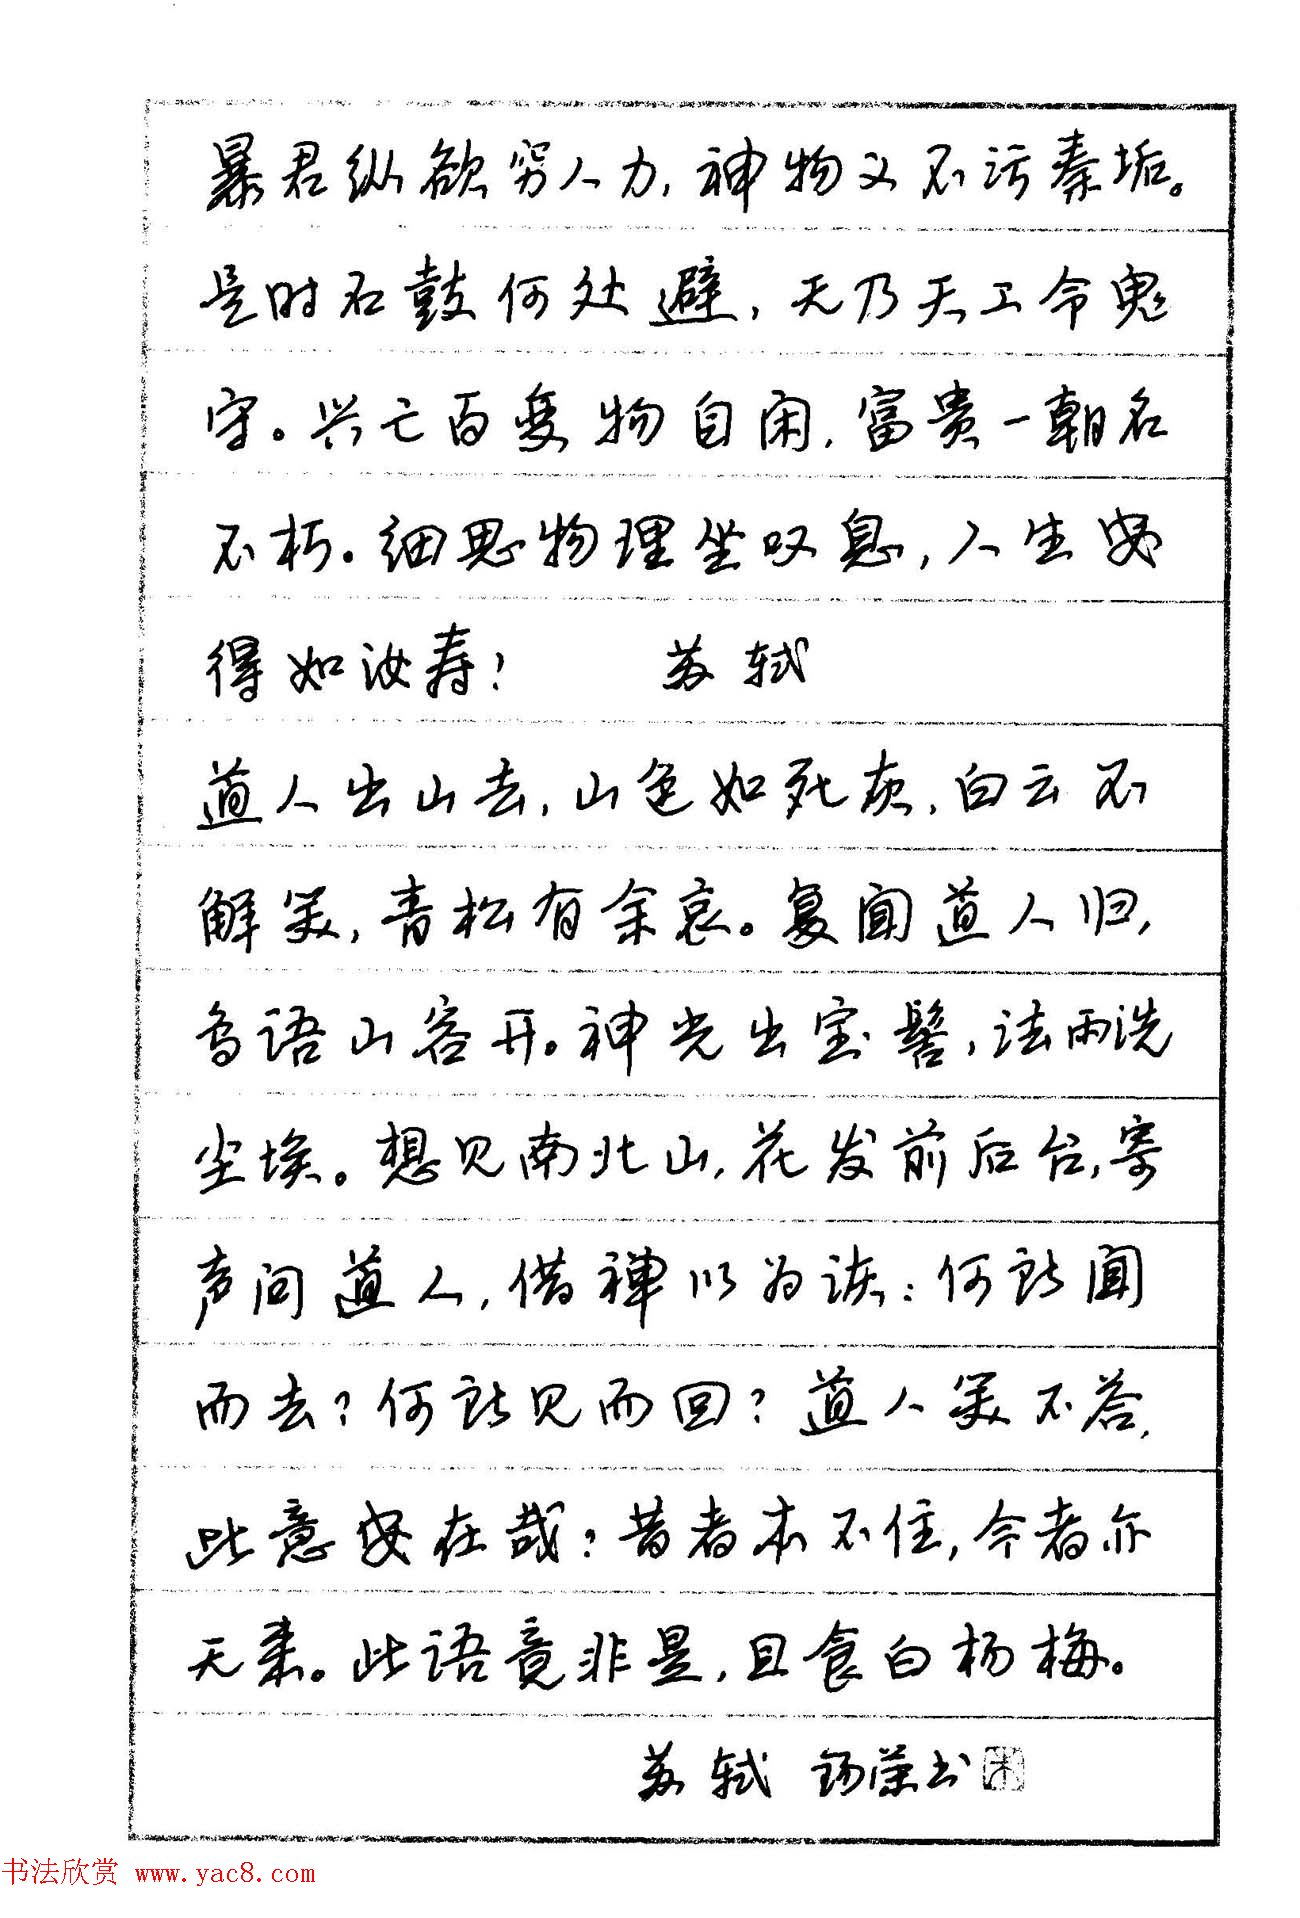 暴君纵欲穷人力,神物义不污秦垢。
是时石鼓何处避,无乃天工令鬼
守。兴亡百变物自闲,富贵一朝名
不朽。细思物理坐叹息,人生安
得如汝寿?　　苏轼
道人出山去,山色如死灰,白云不
解笑,青松有余哀。复闻道人归,
鸟语山容开。神光出宝髻,法雨洗
尘埃。想见南北山,花发前后台,寄
声问道人,借禅以为诙:何所闻
而去?何所见而回?道人笑不答,
此意安在哉?昔者本不住,今者亦
无来。此语竟非是,且食白杨梅。
苏轼 锡荣书
书法欣赏 www.yac8.com